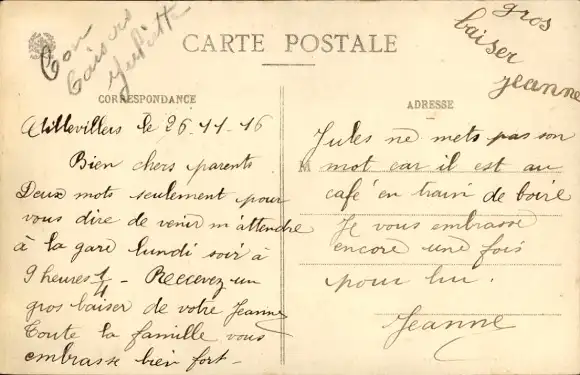 Bon
baisers
CARTE POSTALE
gros
baiser
Jeanne
CORRESPONDANCE
Aillevillers le 26-11-16
Bien chers parents
Deux mots seulement pour
vous dire de venir m'attendre
à la gare lundi soir à
9 heures 1/4 - Reecevez un
gros baiser de votre Jeanne
Toute la famille vous
embrasse bien fort -
ADRESSE
Jules ne mets pas son
M mot car il est au
café en train de boire
Je vous embrasse
encore une fois
pour lui.
Jeanne